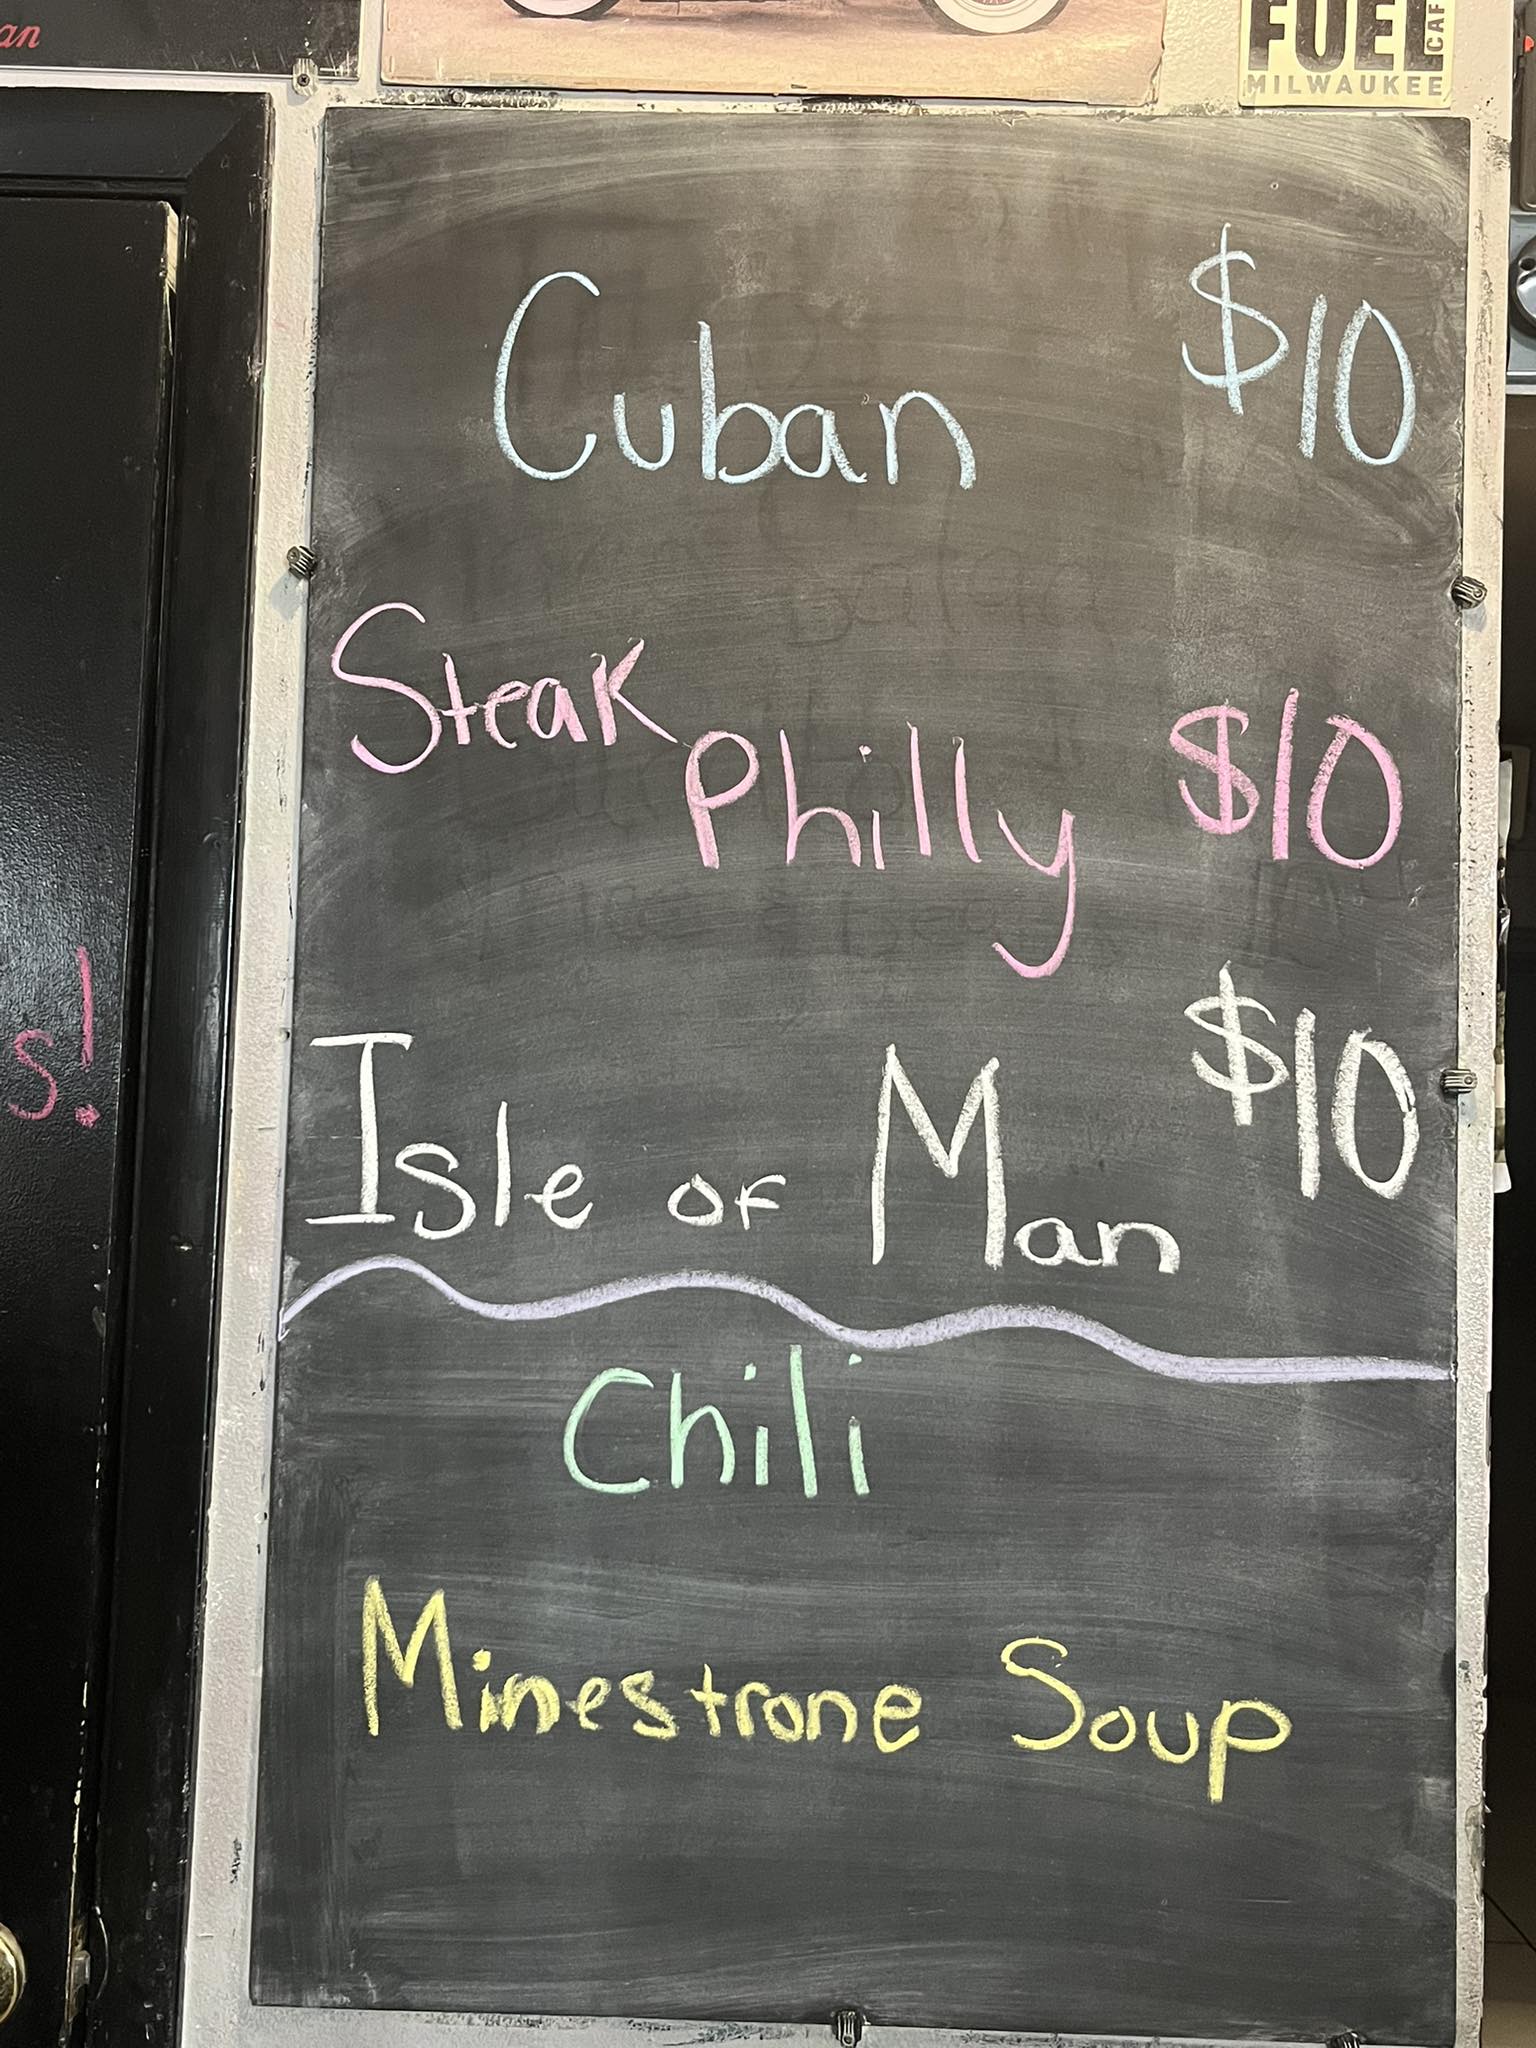 an
FUEL
CAF
MILWAUKEE
Cuban $10
Steak Philly $10
Isle of Man $10
Chili
Minestrone Soup
s!